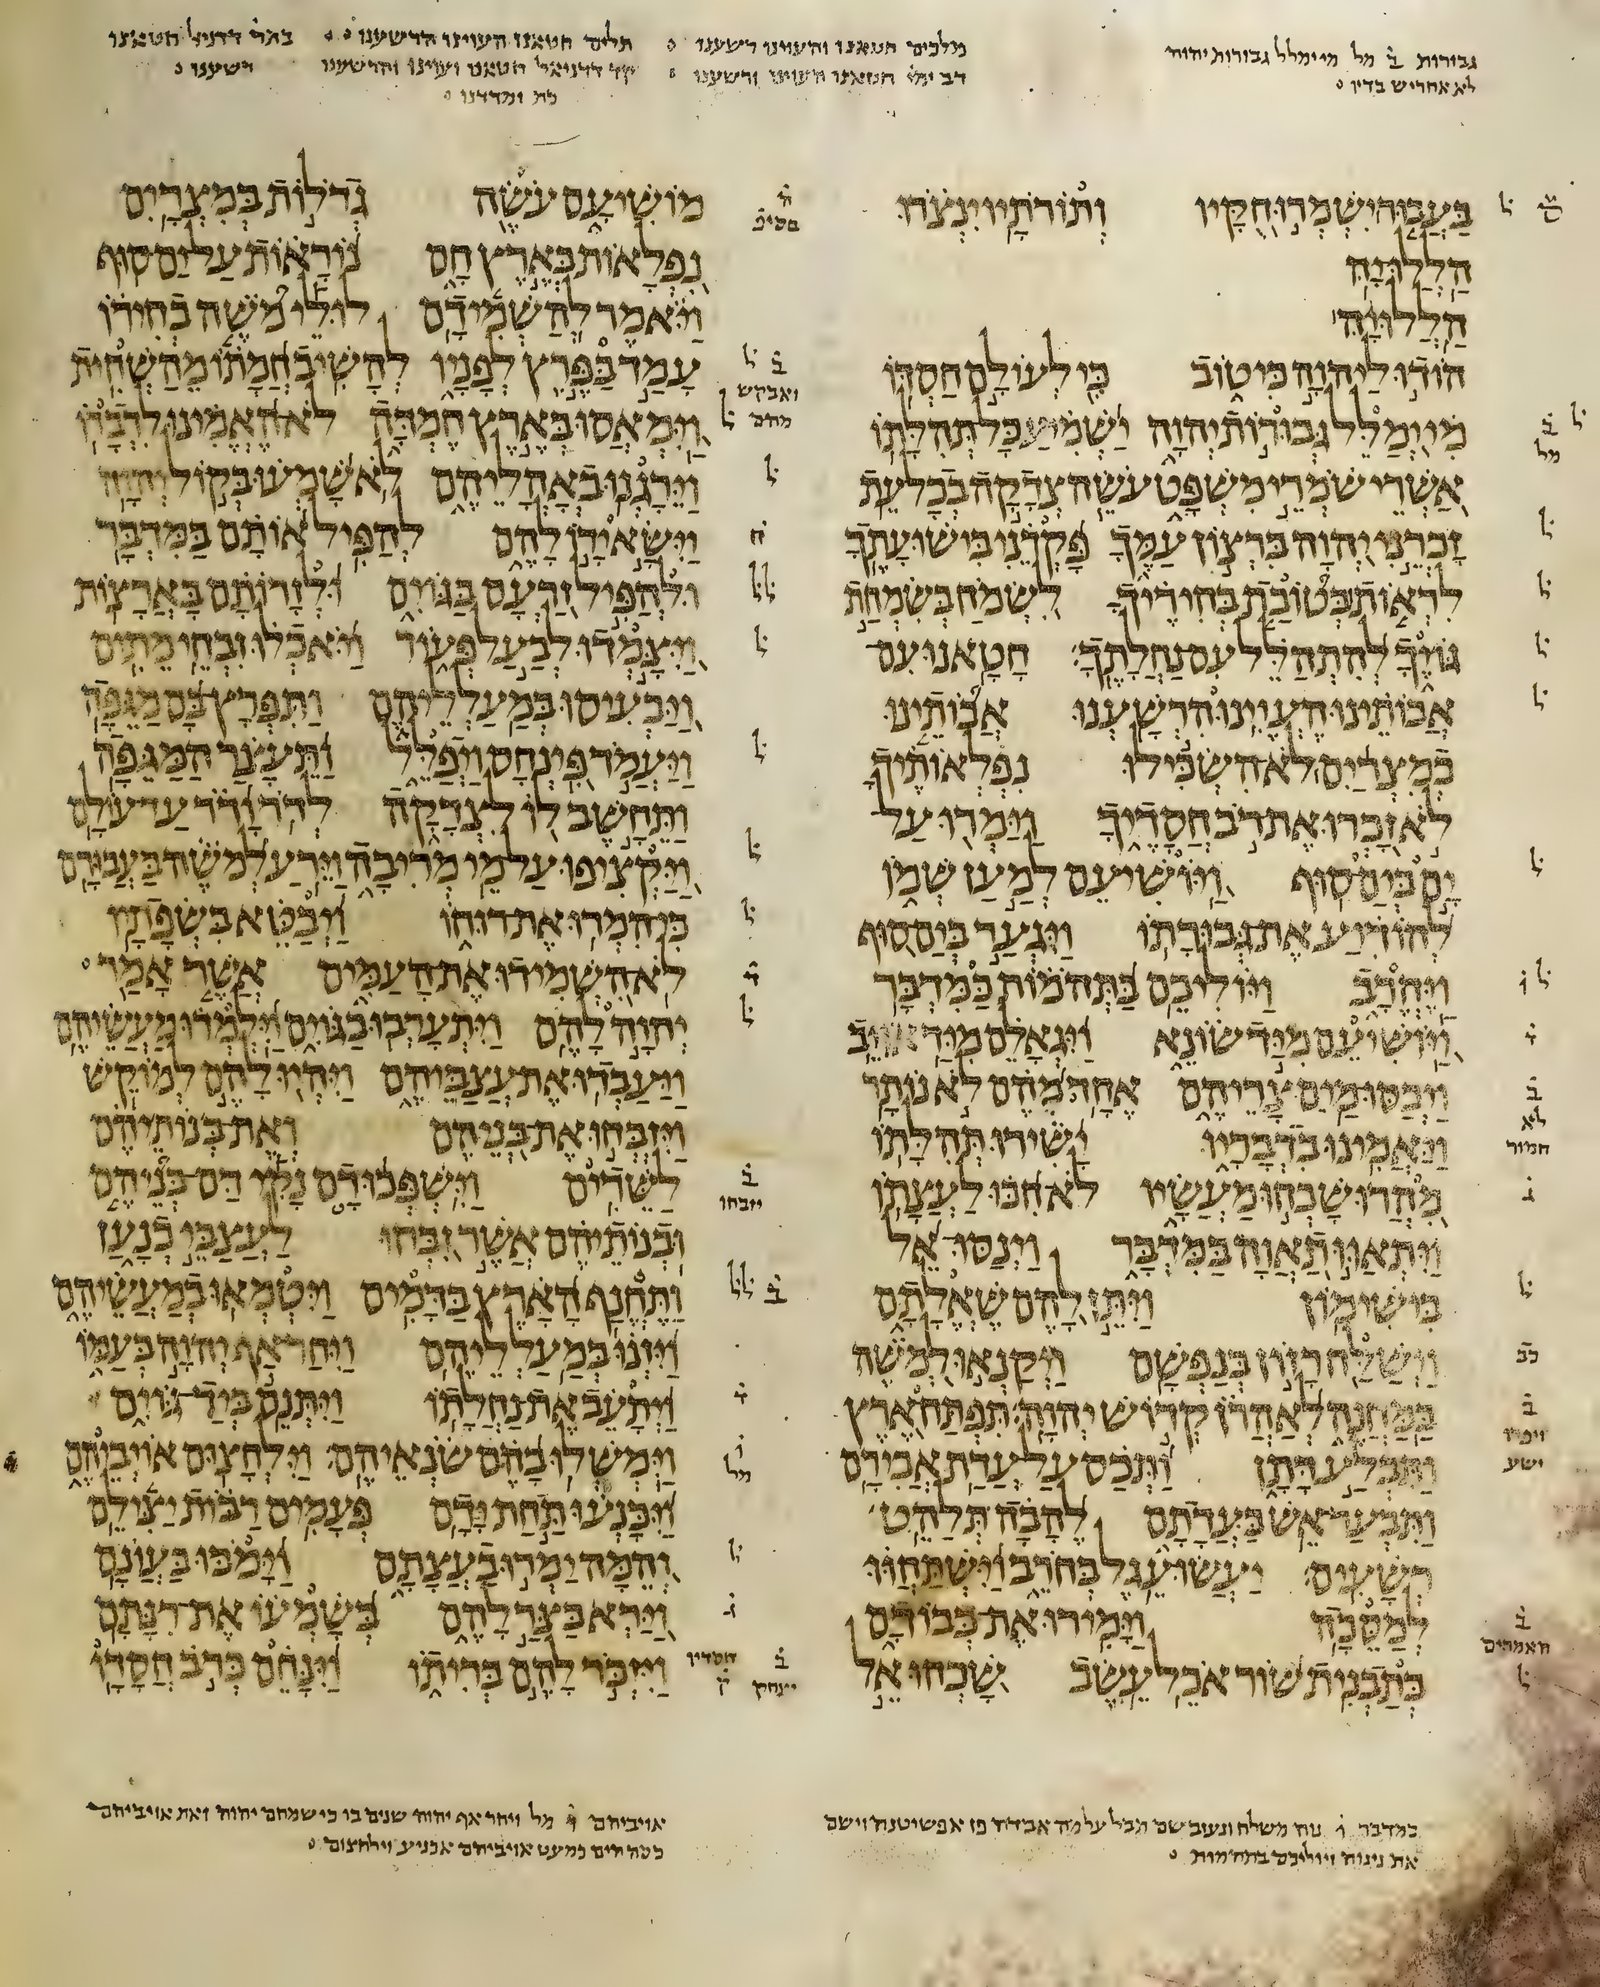 גבורות ב מל מי ימלל גבורות יהוה
לא אחריש בדיו
מלכים חטאנו והעוינו רשענו
דב ימי חטאנו העוינו ורשענו
תלים חטאנו העוינו הרשענו
בעבור ישמרו חקיו ותורתיו ינצרו
הללויה
הללויה
הודו ליהוה כי טוב כי לעולם חסדו
מי ימלל גבורות יהוה ישמיע כל תהלתו
אשרי שמרי משפט עשה צדקה בכל עת
זכרני יהוה ברצון עמך פקדני בישועתך
לראות בטובת בחיריך לשמח בשמחת
גויך להתהלל עם נחלתך חטאנו עם
אבותינו העוינו הרשענו אבותינו
במצרים לא השכילו נפלאותיך
לא זכרו את רב חסדיך וימרו על
ים בים סוף ויושיעם למען שמו
להודיע את גבורתו ויגער בים סוף
ויחרב ויוליכם בתהמות כמדבר
ויושיעם מיד שונא ויגאלם מיד אויב
ויכסו מים צריהם אחד מהם לא נותר
ויאמינו בדבריו ישירו תהלתו
מהרו שכחו מעשיו לא חכו לעצתו
ויתאוו תאוה במדבר וינסו אל
בישימון ויתן להם שאלתם
וישלח רזון בנפשם ויקנאו למשה
במחנה לאהרן קדוש יהוה תפתח ארץ
ותבלע דתן ותכס על עדת אבירם
ותבער אש בעדתם להבה תלהט
רשעים יעשו עגל בחרב וישתחוו
למסכה וימירו את כבודם
בתבנית שור אכל עשב שכחו אל
מושיעם עשה גדלות במצרים
נפלאות בארץ חם נוראות על ים סוף
ויאמר להשמידם לולי משה בחירו
עמד בפרץ לפניו להשיב חמתו מהשחית
וימאסו בארץ חמדה לא האמינו לדברו
וירגנו באהליהם לא שמעו בקול יהוה
וישא ידו להם להפיל אותם במדבר
ולהפיל זרעם בגוים ולזרותם בארצות
ויצמדו לבעל פעור ויאכלו זבחי מתים
ויכעיסו במעלליהם ותפרץ בם מגפה
ויעמד פינחס ויפלל ותעצר המגפה
ותחשב לו לצדקה לדר ודר עד עולם
ויקציפו על מי מריבה וירע למשה בעבורם
כי המרו את רוחו ויבטא בשפתיו
לא השמידו את העמים אשר אמר
יהוה להם ויתערבו בגוים וילמדו מעשיהם
ויעבדו את עצביהם ויהיו להם למוקש
ויזבחו את בניהם ואת בנותיהם
לשדים וישפכו דם נקי דם בניהם
ובנותיהם אשר זבחו לעצבי כנען
ותחנף הארץ בדמים ויטמאו במעשיהם
ויזנו במעלליהם ויחר אף יהוה בעמו
ויתעב את נחלתו ויתנם ביד גוים
וימשלו בהם שנאיהם וילחצום אויביהם
ויכנעו תחת ידם פעמים רבות יצילם
והמה ימרו בעצתם וימכו בעונם
וירא בצר להם בשמעו את רנתם
ויזכר להם בריתו וינחם כרב חסדו